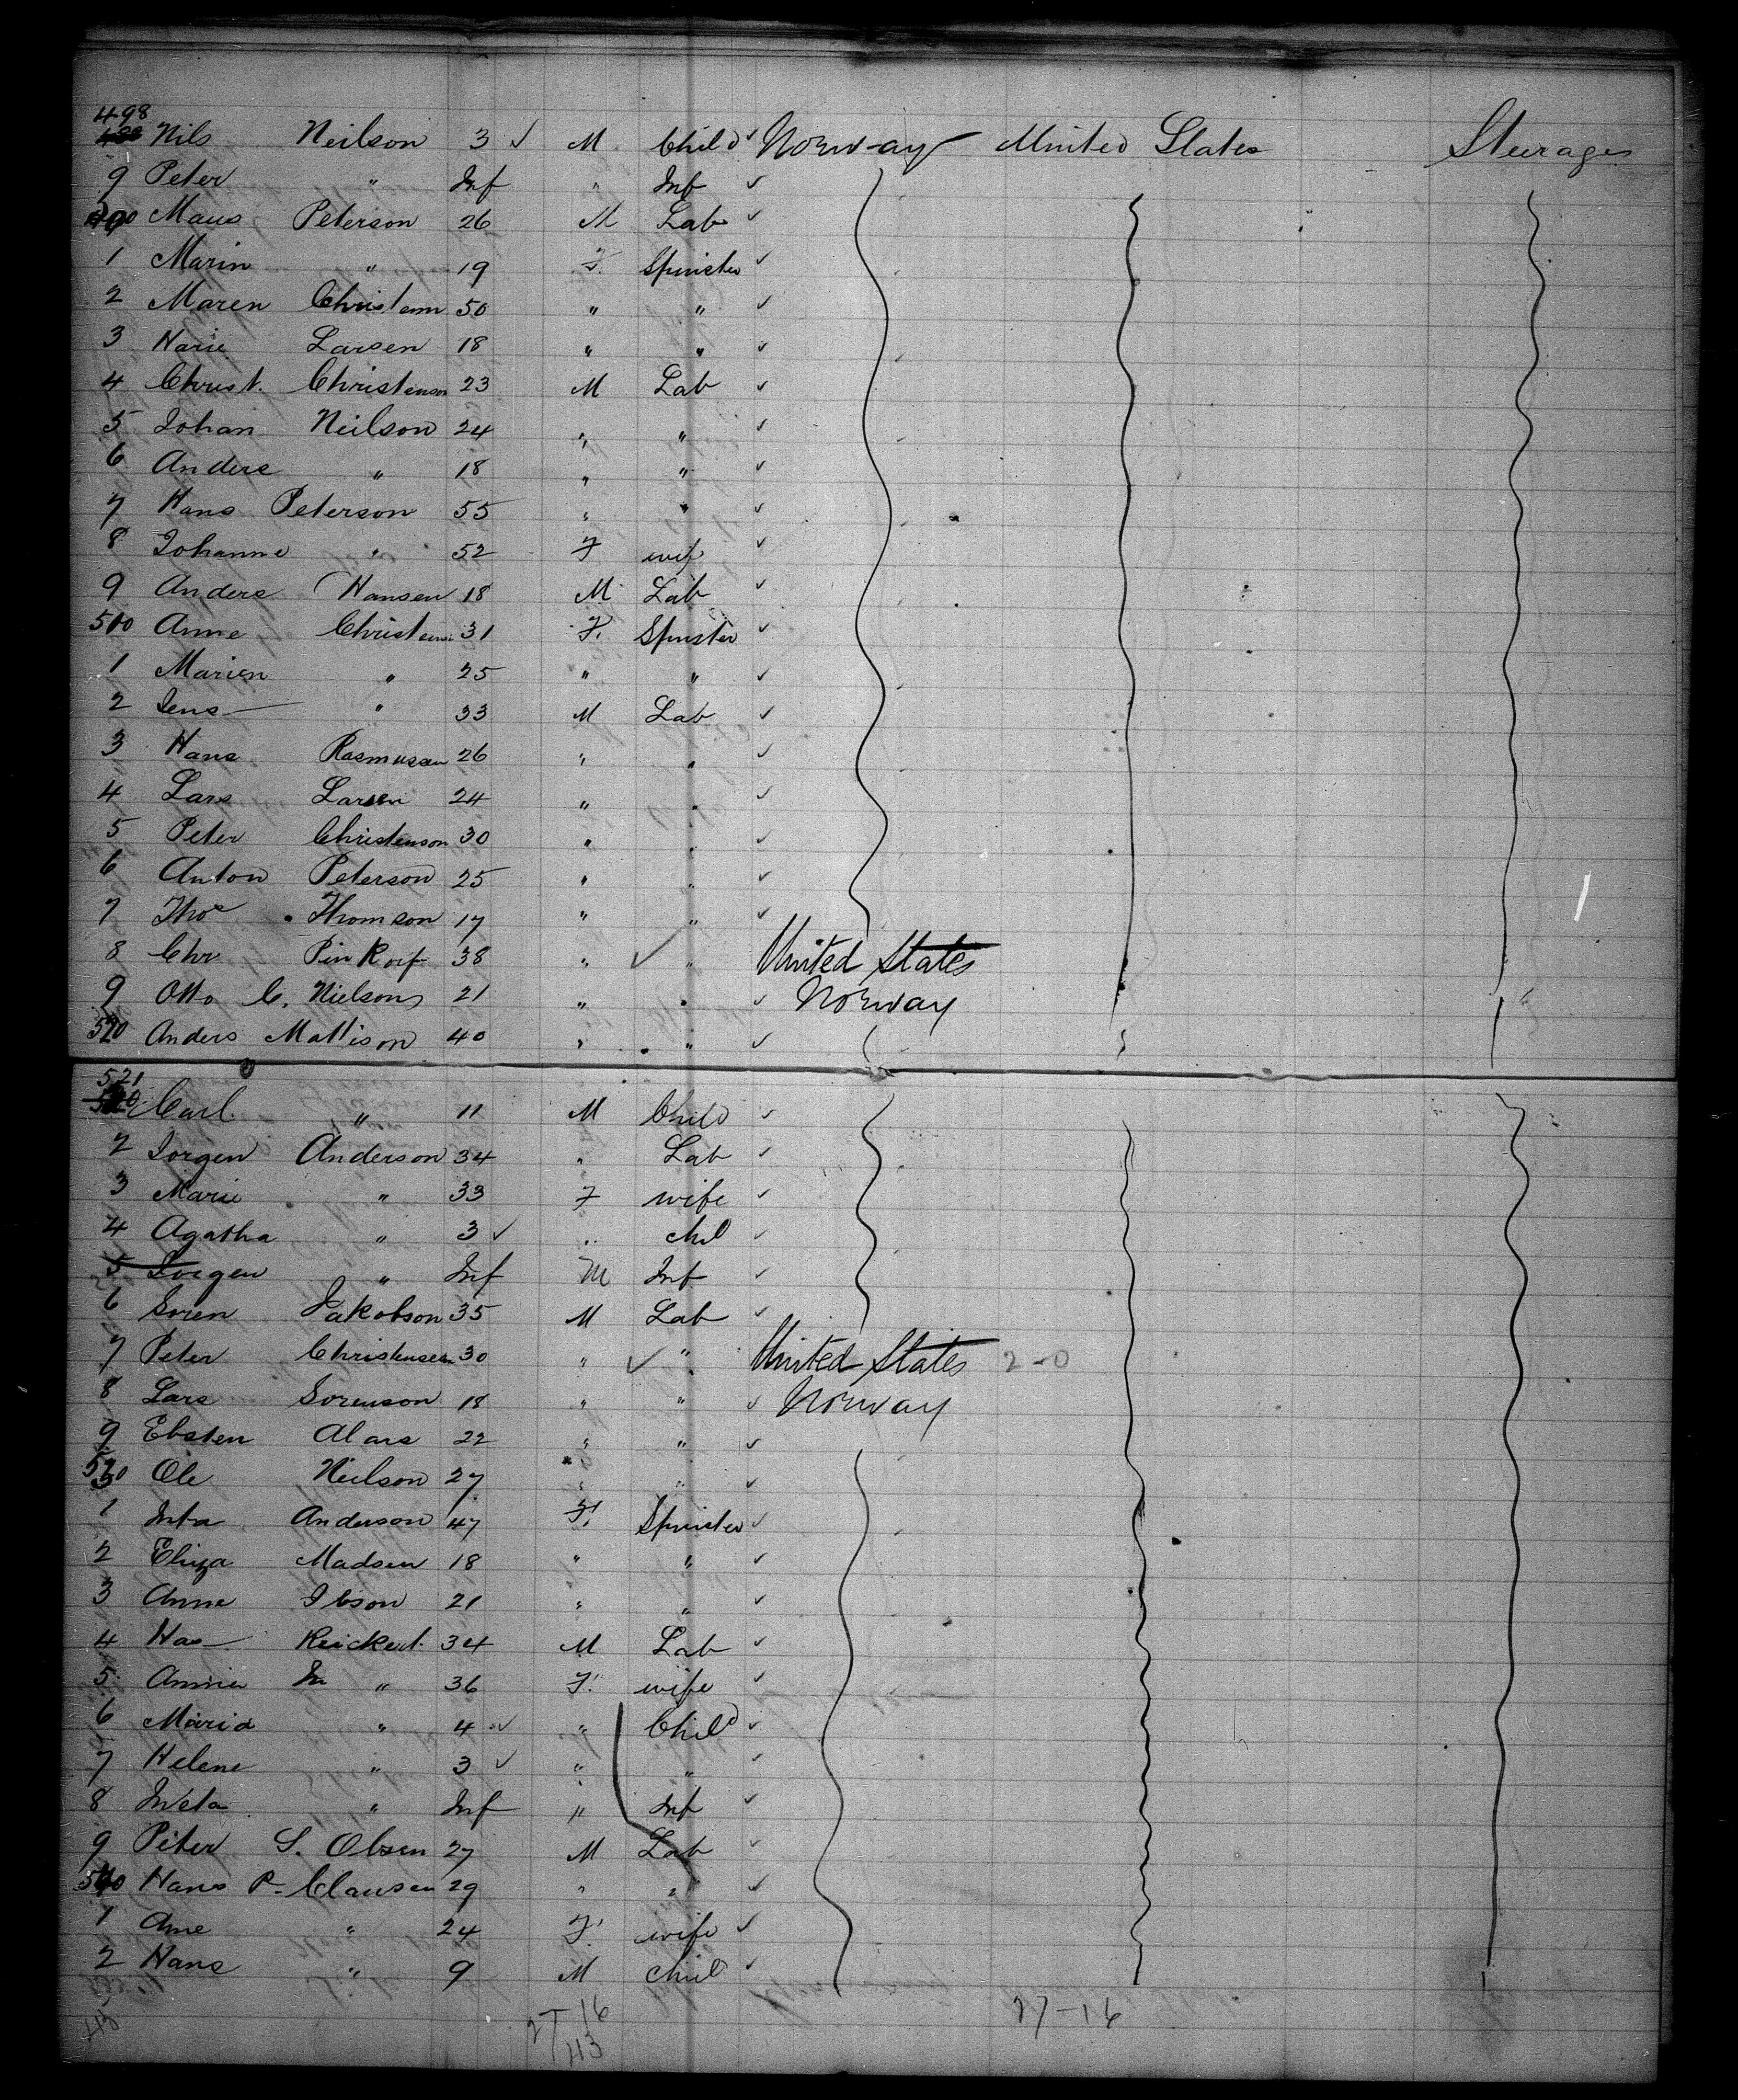 498
488 Nils Neilson 3 ✓ M Child ✓ Norway United States Steerage
9 Peter " Inf " Inf ✓
Maus Peterson 26 M Lab ✓
1 Marin " 19 F. Spinster ✓
2 Maren Christenn 50 " " ✓
3 Marie Larsen 18 " " ✓
4 Christ. Christenson 23 M Lab ✓
5 Johan Neilson 24 " " ✓
6 Anders " 18 " " ✓
7 Hans Peterson 55 " " ✓
8 Johanne " 52 F wif ✓
9 Anders Hansen 18 M Lab ✓
510 Anne Christenn 31 F. Spinster ✓
1 Marien " 25 " " ✓
2 Jens " 33 M Lab ✓
3 Hans Rasmussen 26 " " ✓
4 Lars Larsen 24 " " ✓
5 Peter Christenson 30 " " ✓
6 Anton Peterson 25 " " ✓
7 Thos Thomson 17 " " ✓
8 Chr 38 " ✓ " United States
9 Otto C. Nielson 21 " " ✓ Norway
520 Anders Mattison 40 " " ✓
521
Carl " 11 M Child ✓
2 Jorgen Anderson 34 " Lab ✓
3 Marie " 33 F wife ✓
4 Agatha " 3 ✓ " chil ✓
5 Jorgen " Inf M Inf ✓
6 Soren Jakobson 35 M Lab ✓
7 Peter Christensen 30 " ✓ " United States 2-0
8 Lars Sorenson 18 " " ✓ Norway
9 Ebsten Alars 22 " " ✓
530 Ole Neilson 27 " " ✓
1 Anderson 47 F. Spinster ✓
2 Eliza Madsen 18 " " ✓
3 Anne Ibson 21 " " ✓
4 Has Reickert 34 M Lab ✓
5 Annie M " 36 F. wife ✓
6 Maria " 4 ✓ " Child ✓
7 Helene " 3 ✓ " " ✓
8 " Inf " Inf ✓
9 Peter S. Olsen 27 M Lab ✓
540 Hans P. Clausen 29 " " ✓
1 Ane " 24 F. wife ✓
2 Hans " 9 M Child ✓
27-16 27-16
43